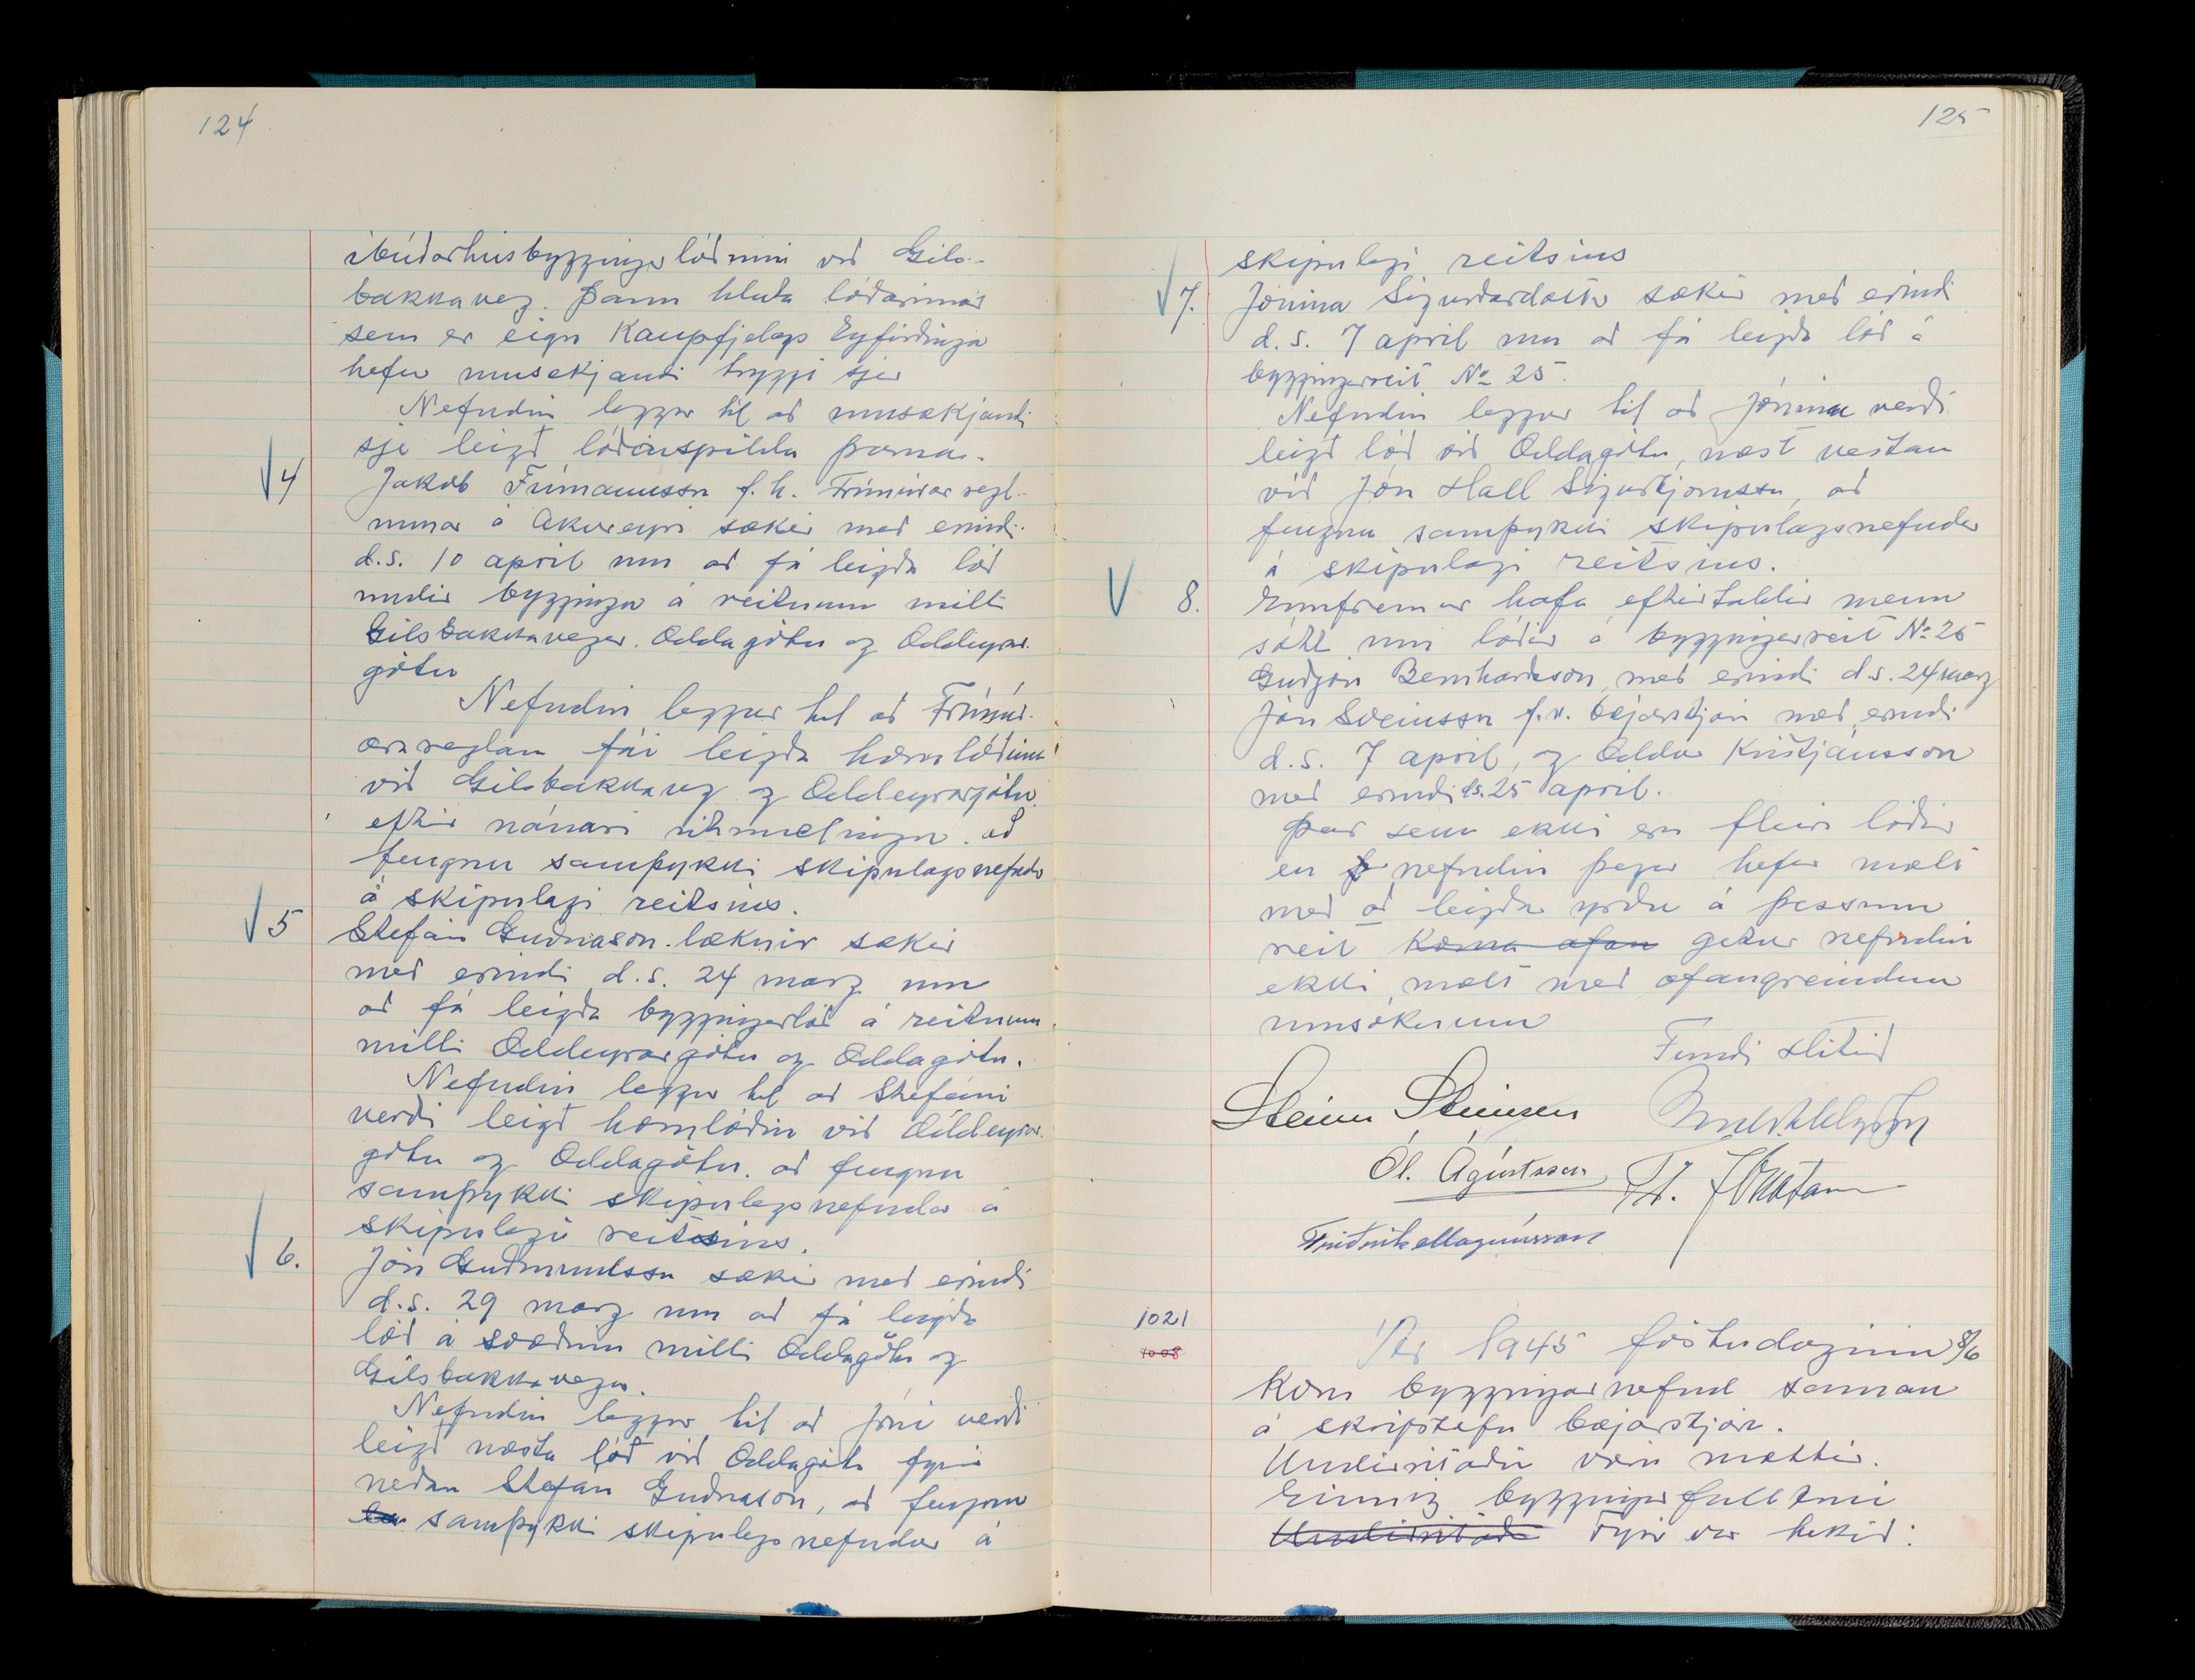 124
íbúðarhúsbyggingarlóðinni við Gils-
bakkaveg. Þann hluta lóðarinnar
sem er eign Kaupfjelags Eyfirðinga
hefur umsækjandi tryggt sjer
Nefndin leggur til að umsækjandi
sje leigð lóðarspilda þarna.
4 Jakob Frímannsson f.h. Frímúrarregl-
unnar á Akureyri sækir með erindi
d.s. 10 april um að fá leigða lóð
undir byggingu á reitnum milli
Gilsbakkavegar. Oddagötu og Oddeyrar-
götu
Nefndin leggur til að Frímúr-
arareglan fái leigða hornlóðina
við Gilsbakkaveg og Oddeyrargötu
eftir nánari útmælingu. að
fengnu samþykki skipulagsnefndar
á skipulagi reitsins.
5 Stefán Guðnason læknir sækir
með erindi d.s. 24 marz um
að fá leigða byggingarlóð á reitnum
milli Oddeyrargötu og Oddagötu.
Nefndin leggur til að Stefáni
verði leigð hornlóðin við Oddeyrar-
götu og Oddagötu. að fengnu
samþykki skipulagsnefndar á
skipulagi reitsins.
6. Jón Guðmundsson sækir með erindi
d.s. 29 marz um að fá leigða
lóð á svæðinu milli Oddagötu og
Gilsbakkavegar.
Nefndin leggur til að Jóni verði
leigð næsta lóð við Oddagötu fyrir
neðan Stefán Guðnason, að fengnu
samþykki skipulagsnefndar á
125
skipulagi reitsins
7. Jónína Sigurðardóttir sækir með erindi
d.s. 7 april um að fá leigða lóð á
byggingarreit No 25.
Nefndin leggur til að Jónínu verði
leigð lóð við Oddagötu, næst vestan
við Jón Hall Sigurbjörnsson, að
fengnu samþykki skipulagsnefndar
á skipulagi reitsins.
8. Ennfremur hafa eftirtaldir menn
sótt um lóðir á byggingarreit No 25
Guðjón Bernharðsson með erindi d.s. 24 marz
Jón Sveinsson f.v. bæjarstjóri með erindi
d.s. 7 april, og Oddur Kristjánsson
með erindi ds. 25 april.
Þar sem ekki eru fleiri lóðir
en nefndin þegar hefur mælt
með að leigðar yrðu á þessum
reit koma ofan getur nefndin
ekki mælt með ofangreindum
umsóknum
Fundi slitið
Steinn Steinsen
Ól. Ágústsson
Friðrik Magnússon
1021
1008
Ár 1945 föstudaginn 8/6
kom byggingarnefnd saman
á skrifstofu bæjarstjóra.
Undirritaðir voru mættir.
Einnig byggingarfulltrúi
Undirritaðir Fyrir var tekið: